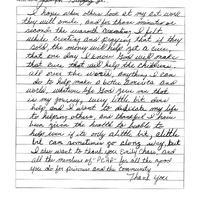 I hope when others look at my art work
they will smile, and for those minutes or
seconds the sacred healing I felt
while creating and praying that if they
sold the money will help get a cure,
that one day I know God will make
that cure that will help the children
all over the world, anything I can
do to help make a better America and
world, whatever life God give me that
is my journey, every little bit does
help and I want to dedicate my life
to helping others, and thankful I have
been given the health to be able to
help even if its only a little bit, a little
bit can sometimes go along way, but
I also want to thank you Emily Chase and
all the members of PCAP for all the good
you do for prisoners and the Community
Thank You